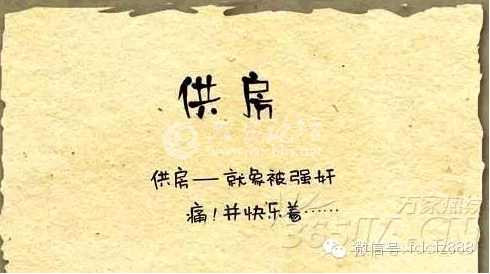 供房
供房—就象被强奸
痛!并快乐着……
万家热线
365JIA.CN
微信号: fdcfz888